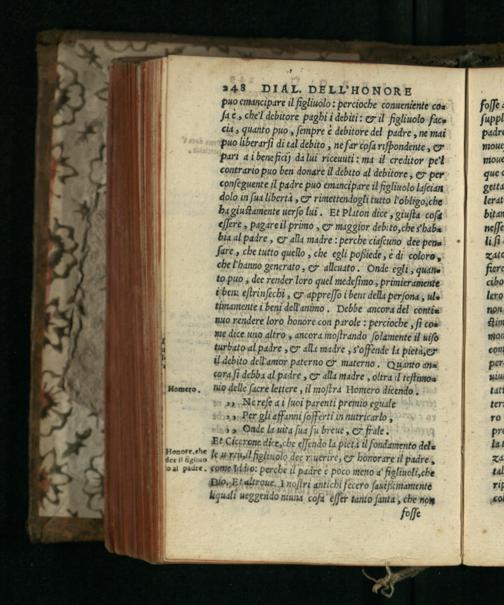 248 DIAL. DELL'HONORE
puo emancipare il figliuolo: percioche conueniente co=
sa è, che'l debitore paghi i debiti: & il figliuolo fac=
cia, quanto puo, sempre è debitore del padre, ne mai
puo liberarsi di tal debito, ne far cosa rispondente, &
pari a i beneficij da lui riceuuti: ma il creditor pe'l
contrario puo ben donare il debito al debitore, & per
conseguente il padre puo emancipare il figliuolo lascian
dolo in sua libertà, & rimettendogli tutto l'obligo, che
ha giustamente uerso lui. Et Platon dice, giusta cosa
essere, pagare il primo, & maggior debito, che s'hab=
bia al padre, & alla madre: perche ciascuno dee pen=
sare, che tutto quello, che egli possiede, è di coloro,
che l'hanno generato, & alleuato. Onde egli, quan=
to puo, dee render loro quel medesimo, primieramente
i beni estrinsechi, & appresso i beni della persona, ul=
timamente i beni dell'animo. Debbe ancora del conti=
nuo rendere loro honore con parole: percioche, si co=
me dice uno altro, ancora mostrando solamente il uiso
turbato al padre, & alla madre, s'offende la pietà, &
il debito dell'amor paterno & materno. Quanto an=
cora si debba al padre, & alla madre, oltra il testimo=
Homero. nio delle sacre lettere, il mostra Homero dicendo.
,, Ne rese a i suoi parenti premio eguale
,, Per gli affanni sofferti in nutricarlo,
,, Onde la uita sua fu breue, & frale.
Et Cicerone dice, che essendo la pietà il fondamento del=
Honore, che
dee il figliuo
lo al padre.
le uirtù, il figliuolo dee riuerire, & honorare il padre,
come Iddio: perche il padre è poco meno a' figliuoli, che
Dio. Et altroue. I nostri antichi fecero
liquali ueggendo niuna cosa esser tanto santa, che non
fosse